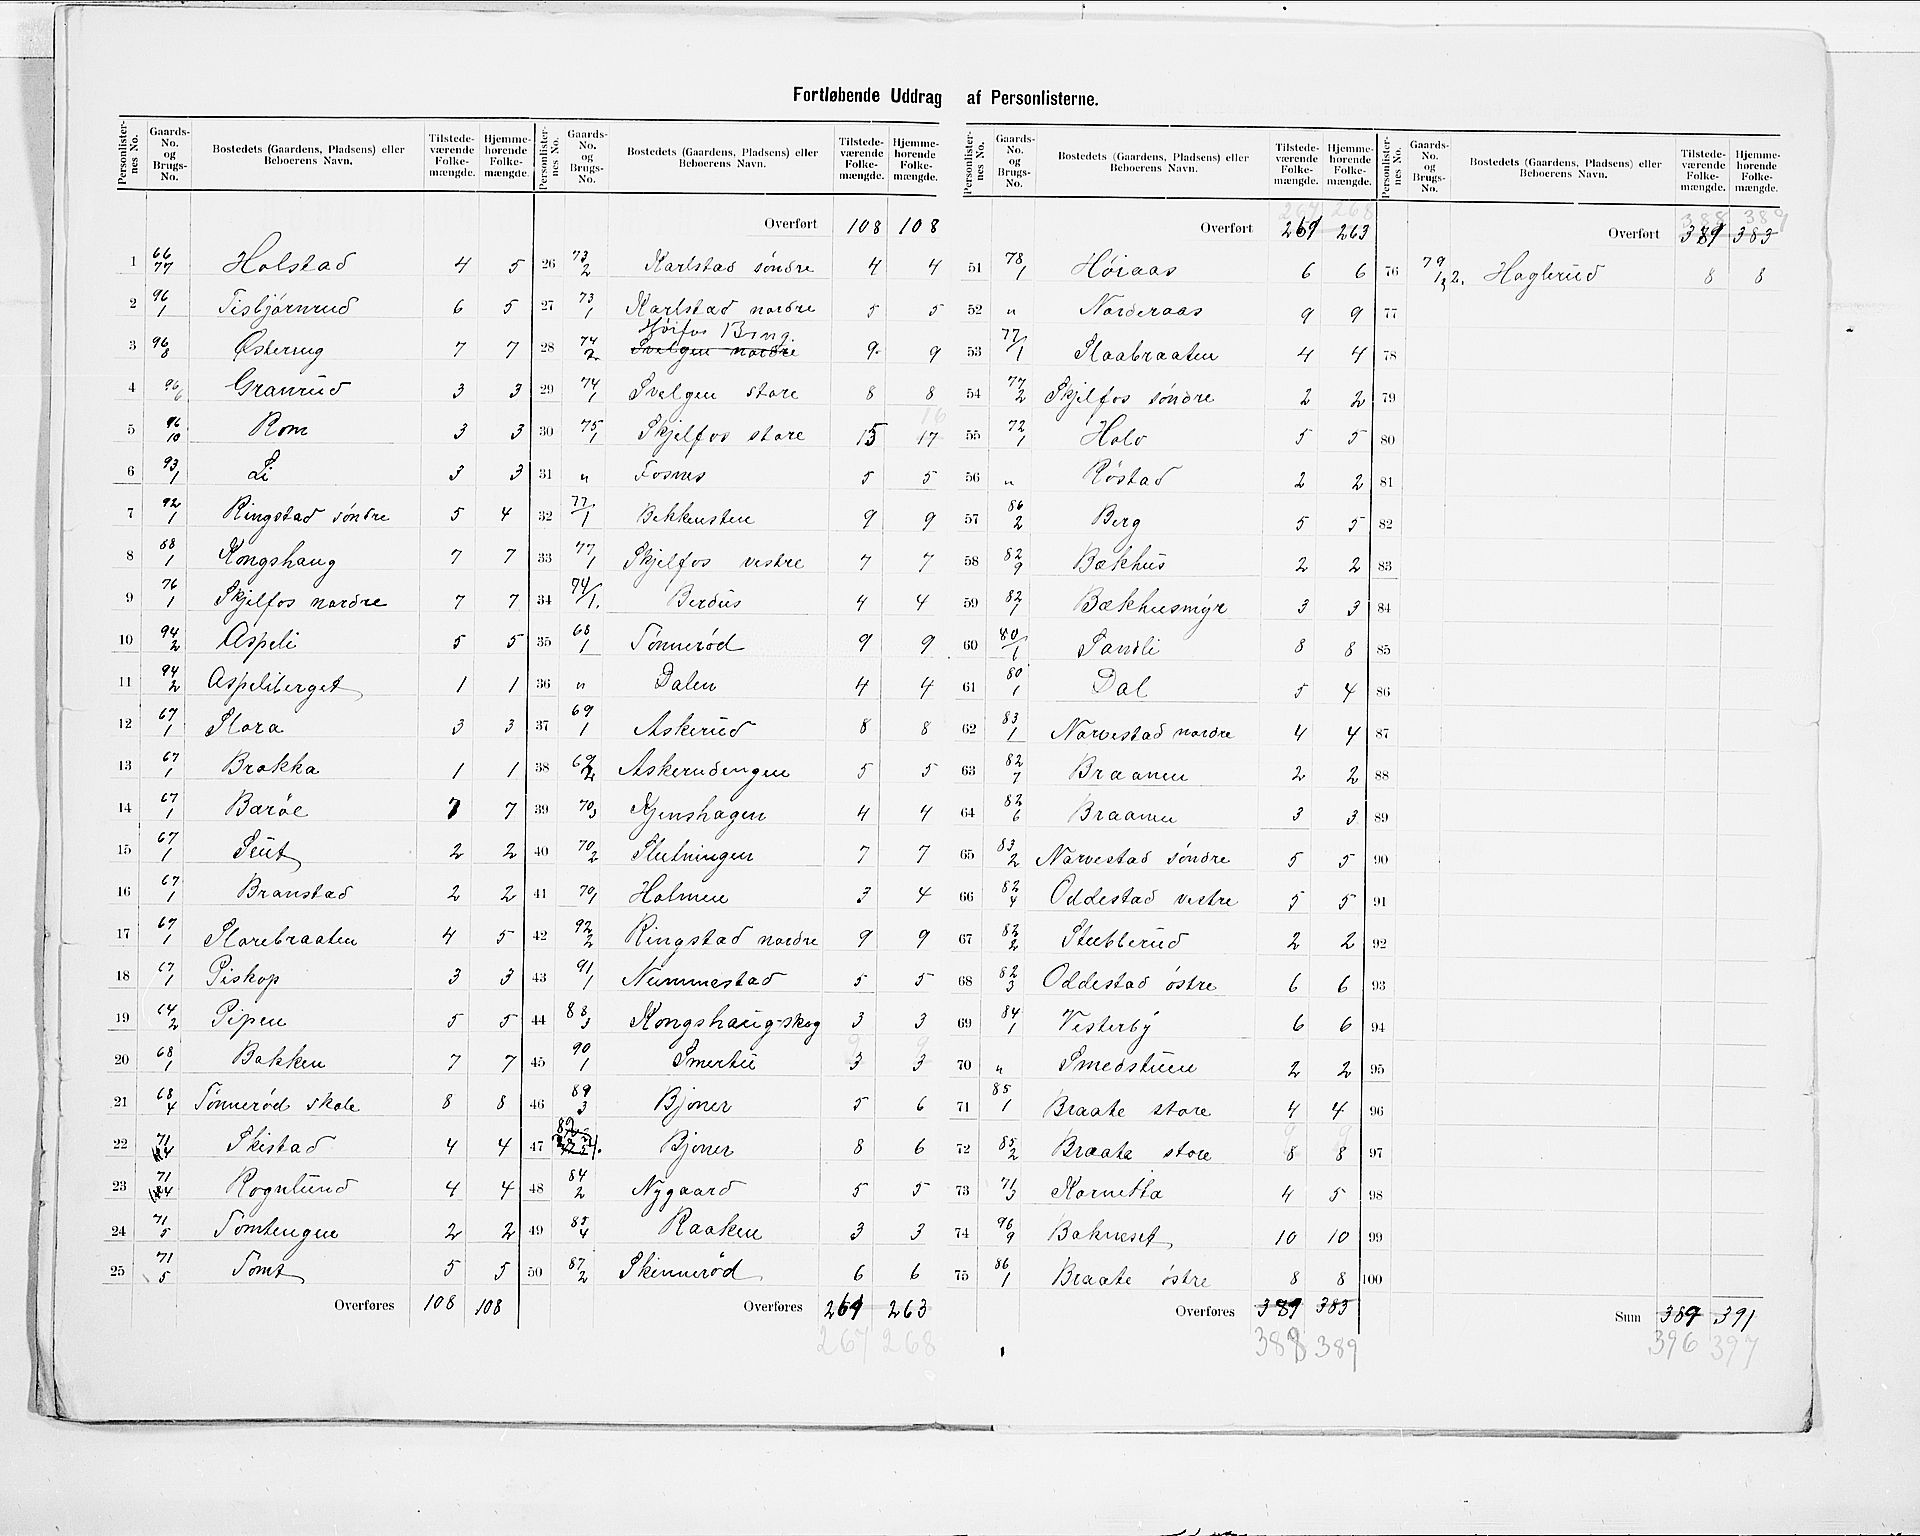 Fortløbende Uddrag af Personlisterne.
Personlister-nes No. | Gaards-No. og Brugs-No. | Bostedets (Gaardens, Pladsens) eller Beboerens Navn. | Tilstede-værende Folke-mængde. | Hjemme-hørende Folke-mængde.
1 66/77 Holstad 4 5
2 96/1 Tisbjørnrud 6 5
3 96/8 Østereng 7 7
4 96/6 Granrud 3 3
5 96/10 Rom 3 3
6 93/1 Li 3 3
7 92/1 Ringstad søndre 5 4
8 88/1 Kongshaug 7 7
9 76/1 Skjelfos nordre 7 7
10 94/2 Aspeli 5 5
11 94/2 Aspeliberget 1 1
12 67/1 Slora 3 3
13 67/1 Brakka 1 1
14 67/1 Barøl 7 7
15 67/1 Sent 2 2
16 67/1 Branstad 2 2
17 67/1 Slorebraaten 4 5
18 67/1 Piskop 3 3
19 64/2 Pipen 5 5
20 68/1 Bakken 7 7
21 68/4 Tønnerød skole 8 8
22 71/4 Skistad 4 4
23 71/4 Rognlund 4 4
24 71/5 Tomtengen 2 2
25 71/5 Tomt 5 5
Overføres 108 108
Personlister-nes No. | Gaards-No. og Brugs-No. | Bostedets (Gaardens, Pladsens) eller Beboerens Navn. | Tilstede-værende Folke-mængde. | Hjemme-hørende Folke-mængde.
Overført 108 108
26 73/2 Karlstad søndre 4 4
27 73/1 Karlstad nordre 5 5
Høifos Brug
28 74/2 Svelgen nordre 9 9
29 74/1 Svelgen store 8 8
16
30 75/1 Skjelfos store 15 17
31 " Fosnes 5 5
32 77/1 Bekkensten 9 9
33 77/1 Skjelfos vestre 7 7
34 74/1. Berdus 4 4
35 68/1 Tønnerød 9 9
36 " Dalen 4 4
37 69/1 Askerud 8 8
38 69/2 Askerudengen 5 5
39 70/3 Kjenshagen 4 4
40 70/2 Slutningen 7 7
41 70/1 Holmen 3 4
42 92/2 Ringstad nordre 9 9
43 91/1 Nummestad 5 5
44 88/3 Kongshaug-skog 3 3
45 90/1 Smertu 3 3
46 89/3 Bjoner 5 6
47 Bjoner 8 6
48 84/2 Nygaard 5 5
49 85/4 Raaken 3 3
50 87/2 Skinnerød 6 6
Overføres 261 263
267 268
Personlister-nes No. | Gaards-No. og Brugs-No. | Bostedets (Gaardens, Pladsens) eller Beboerens Navn. | Tilstede-værende Folke-mængde. | Hjemme-hørende Folke-mængde.
267 268
Overført 261 263
51 78/1 Høiaas 6 6
52 " Norderaas 9 9
53 77/1 Slaabraaten 4 4
54 77/2 Skjelfos søndre 2 2
55 72/1 Holo 5 5
56 " Røstad 2 2
57 86/2 Berg 5 5
58 82/9 Bækhus 2 2
59 82/1 Bækhusmyr 3 3
60 80/1 Sandli 8 8
61 80/1 Dal 5 4
62 83/1 Narvestad nordre 4 4
63 82/7 Braanen 2 2
64 82/6 Braanen 3 3
65 83/2 Narvestad søndre 5 5
66 82/4 Oddestad vestre 5 5
67 82/2 Stubberud 2 2
68 82/3 Oddestad østre 6 6
69 84/1 Vesterby 6 6
70 " Smedstuen 2 2
71 85/1 Braate store 4 4
72 85/2 Braate store 8 8
73 71/3 Kornetta 4 5
74 96/9 Bakneset 10 10
75 86/1 Braate østre 8 8
Overføres 389 383
388 389
Personlister-nes No. | Gaards-No. og Brugs-No. | Bostedets (Gaardens, Pladsens) eller Beboerens Navn. | Tilstede-værende Folke-mængde. | Hjemme-hørende Folke-mængde.
388 389
Overført 389 383
76 79/1,2. Haglerud 8 8
77
78
79
80
81
82
83
84
85
86
87
88
89
90
91
92
93
94
95
96
97
98
99
100
Sum 389 391
396 397